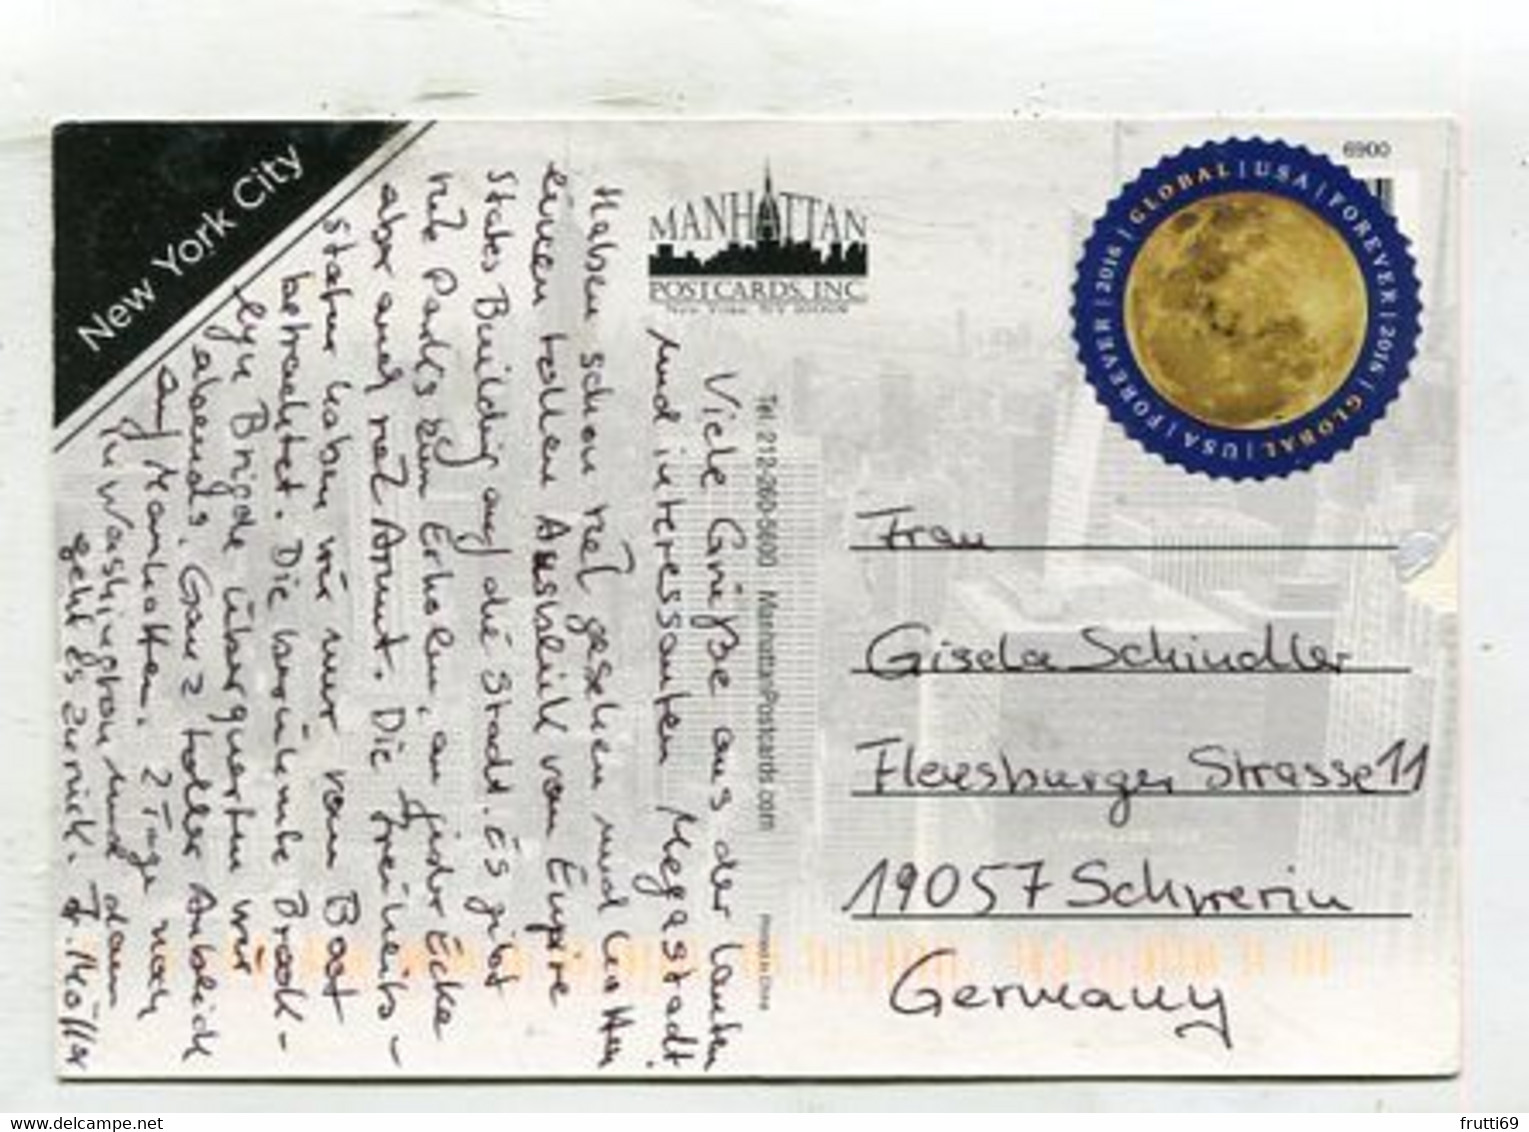 New York City
MANHATTAN
POSTCARDS, INC.
New York, NY
6900
GLOBAL | USA | FOREVER | 2016 | GLOBAL | USA | FOREVER | 2016 |
Viele Grüße aus der lauten
und interessanten Megastadt
Haben schon viel gesehen und hatten
einen tollen Ausblick von Empire
States Building auf die Stadt. Es gibt
viele Parks zum Erholen, an jeder Ecke
aber auch viel Armut. Die Freiheits-
statue haben wir nur vom Boot
betrachtet. Die berühmte Brook-
lyn Brigde überquerten wir
abends. Ganz toller Anblick
auf Manhatten. 2 Tage noch
in Washington und dann
geht es zurück. Möller
Tel. 212-260-5600 ManhattanPostcards.com
Printed in China
Frau
Gisela Schindler
Flensburger Strasse 11
19057 Schwerin
Germany
frutti69